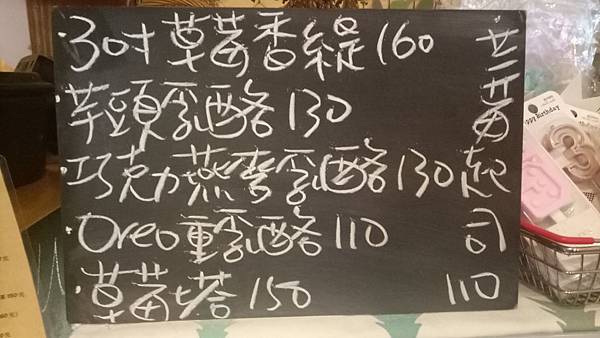 ·3吋草莓香緹160
·芋頭乳酪130
·巧克力燕麥乳酪130
·Oreo重乳酪110
·草莓塔150
草莓起司110
Birthday